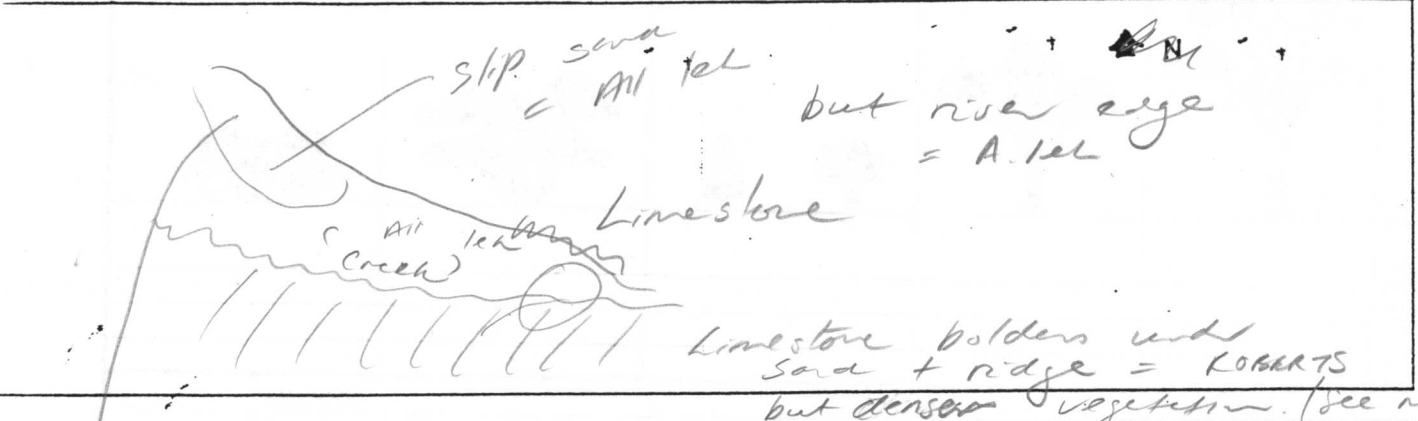 slip sand
= All leh
N
but river edge
= A. leh
Limestone
( All leh
Creek)
Limestone bolders under
sand + ridge = ROBERTS
but denser vegetation. (see